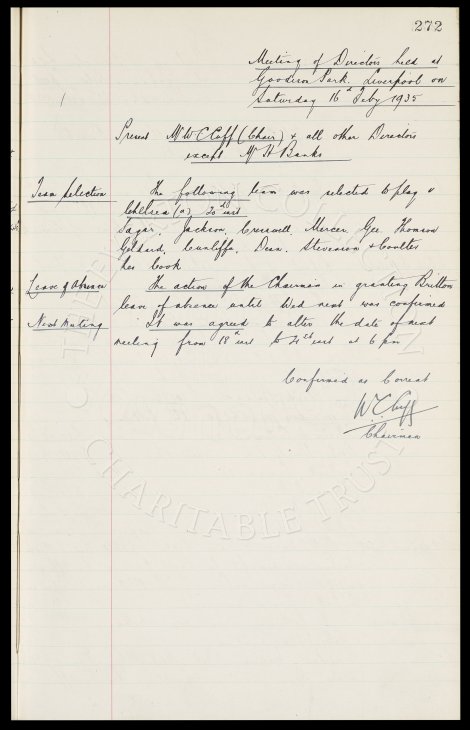 272
Meeting of Directors held at
Goodison Park. Liverpool on
Saturday 16th Feby 1935
Present Mr W C Cuff (Chair) & all other Directors
except Mr H Banks
Team Selection
The following team was selected to play v
Chelsea (a) 20th inst
Sagar, Jackson, Cresswell, Mercer, Gee, Thomson
Geldard, Cunliffe, Dean, Stevenson & Coulter
Res Cook
Leave of Absence
The action of the Chairman in granting Britton
leave of absence until Wed next was confirmed
Next Meeting
It was agreed to alter the date of next
meeting from 18th inst to inst at 6 pm
Confirmed as Correct
W.C. Cuff
Chairman
THE EVERTON COLLECTION
CHARITABLE TRUST